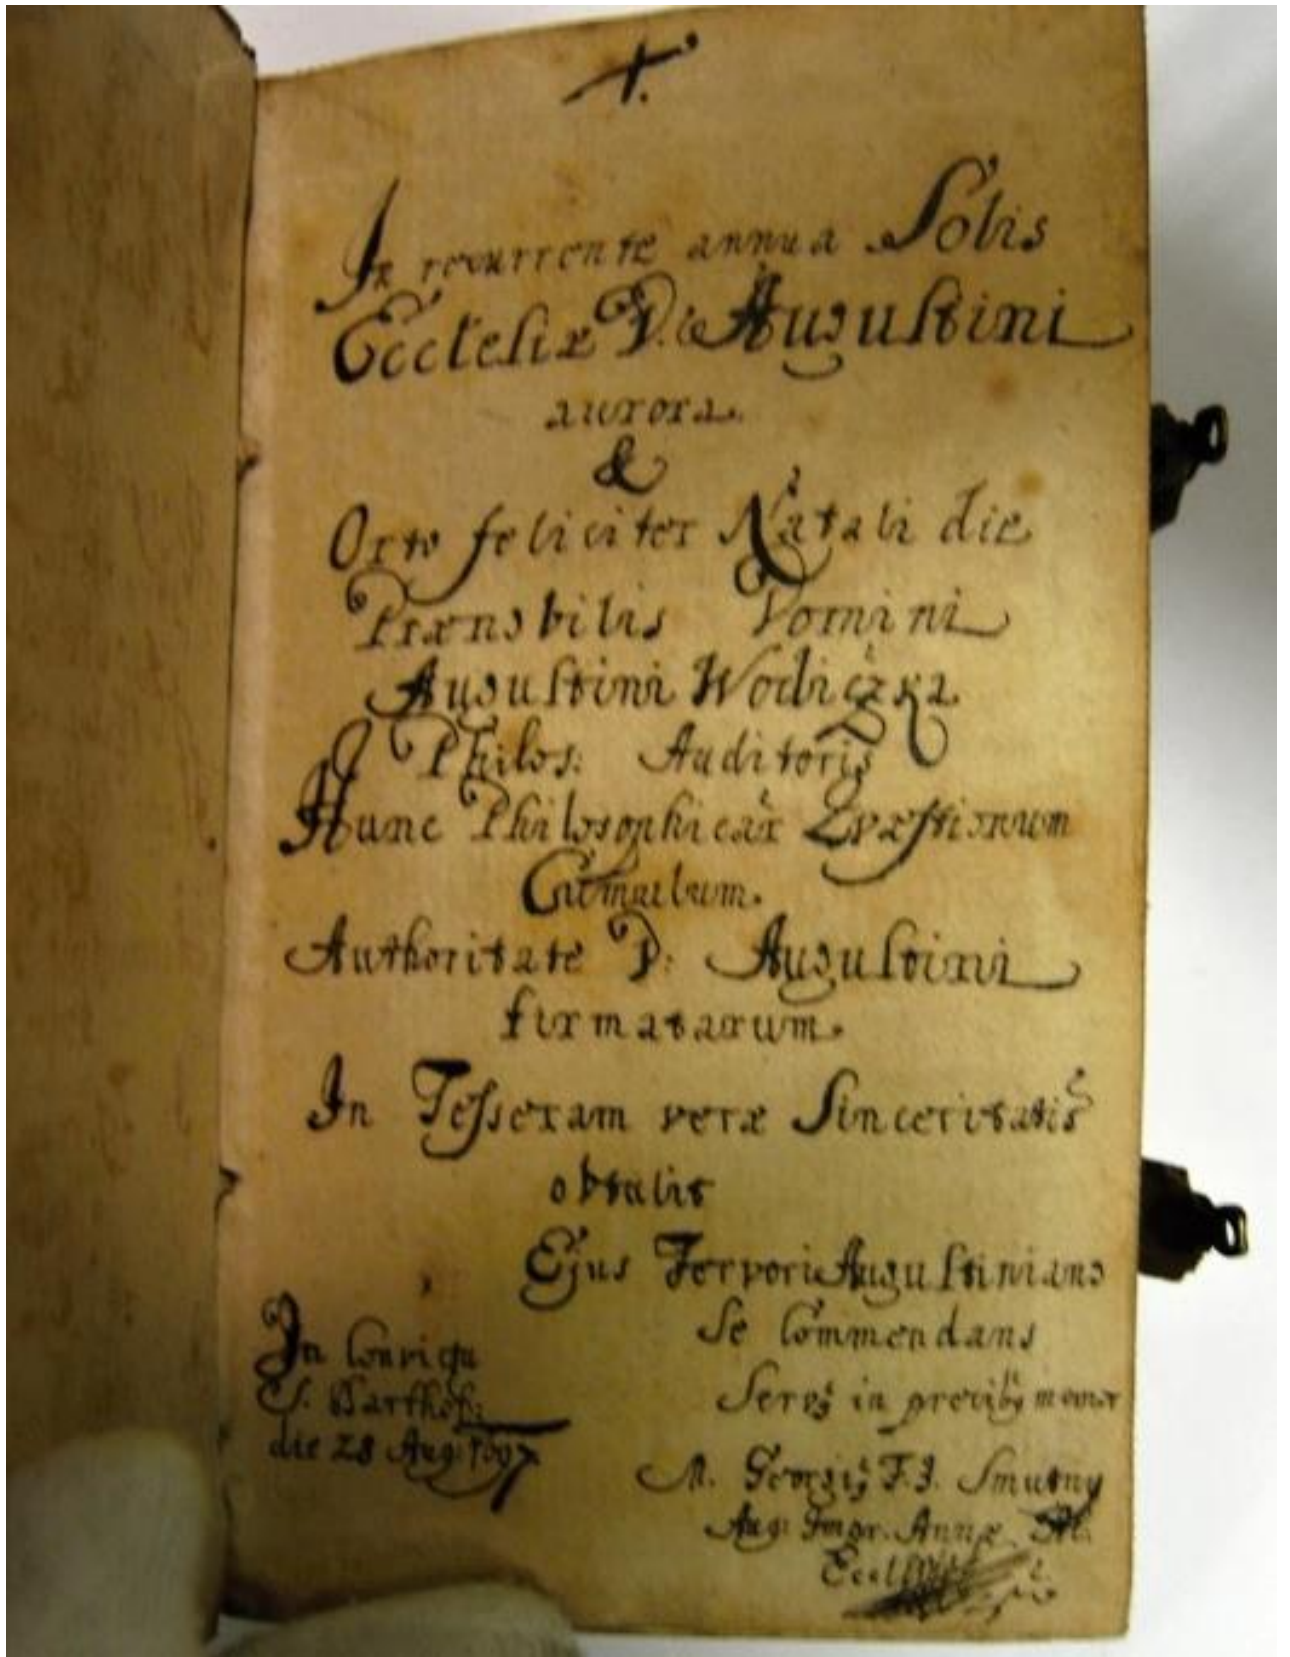 In recurrente annua Solis
Ecclesiæ D. Augustini
aurora.
&
Orto feliciter Natali die
Prænobilis Domini
Augustini Wodiczka
Philos: Auditoris
Hunc Philosophicar Quæstionum
Cumulum.
Authoritate D: Augustini
firmatarum.
In Tesseram veræ Sinceritatis
obtulit
Ejus Fervori Augustiniano
se Commendans
In Convictu
S. Barthol:
die 28 Aug:
Servq in precibq memor
M. Georgiq F. J. Smutny
Aug: Annæ